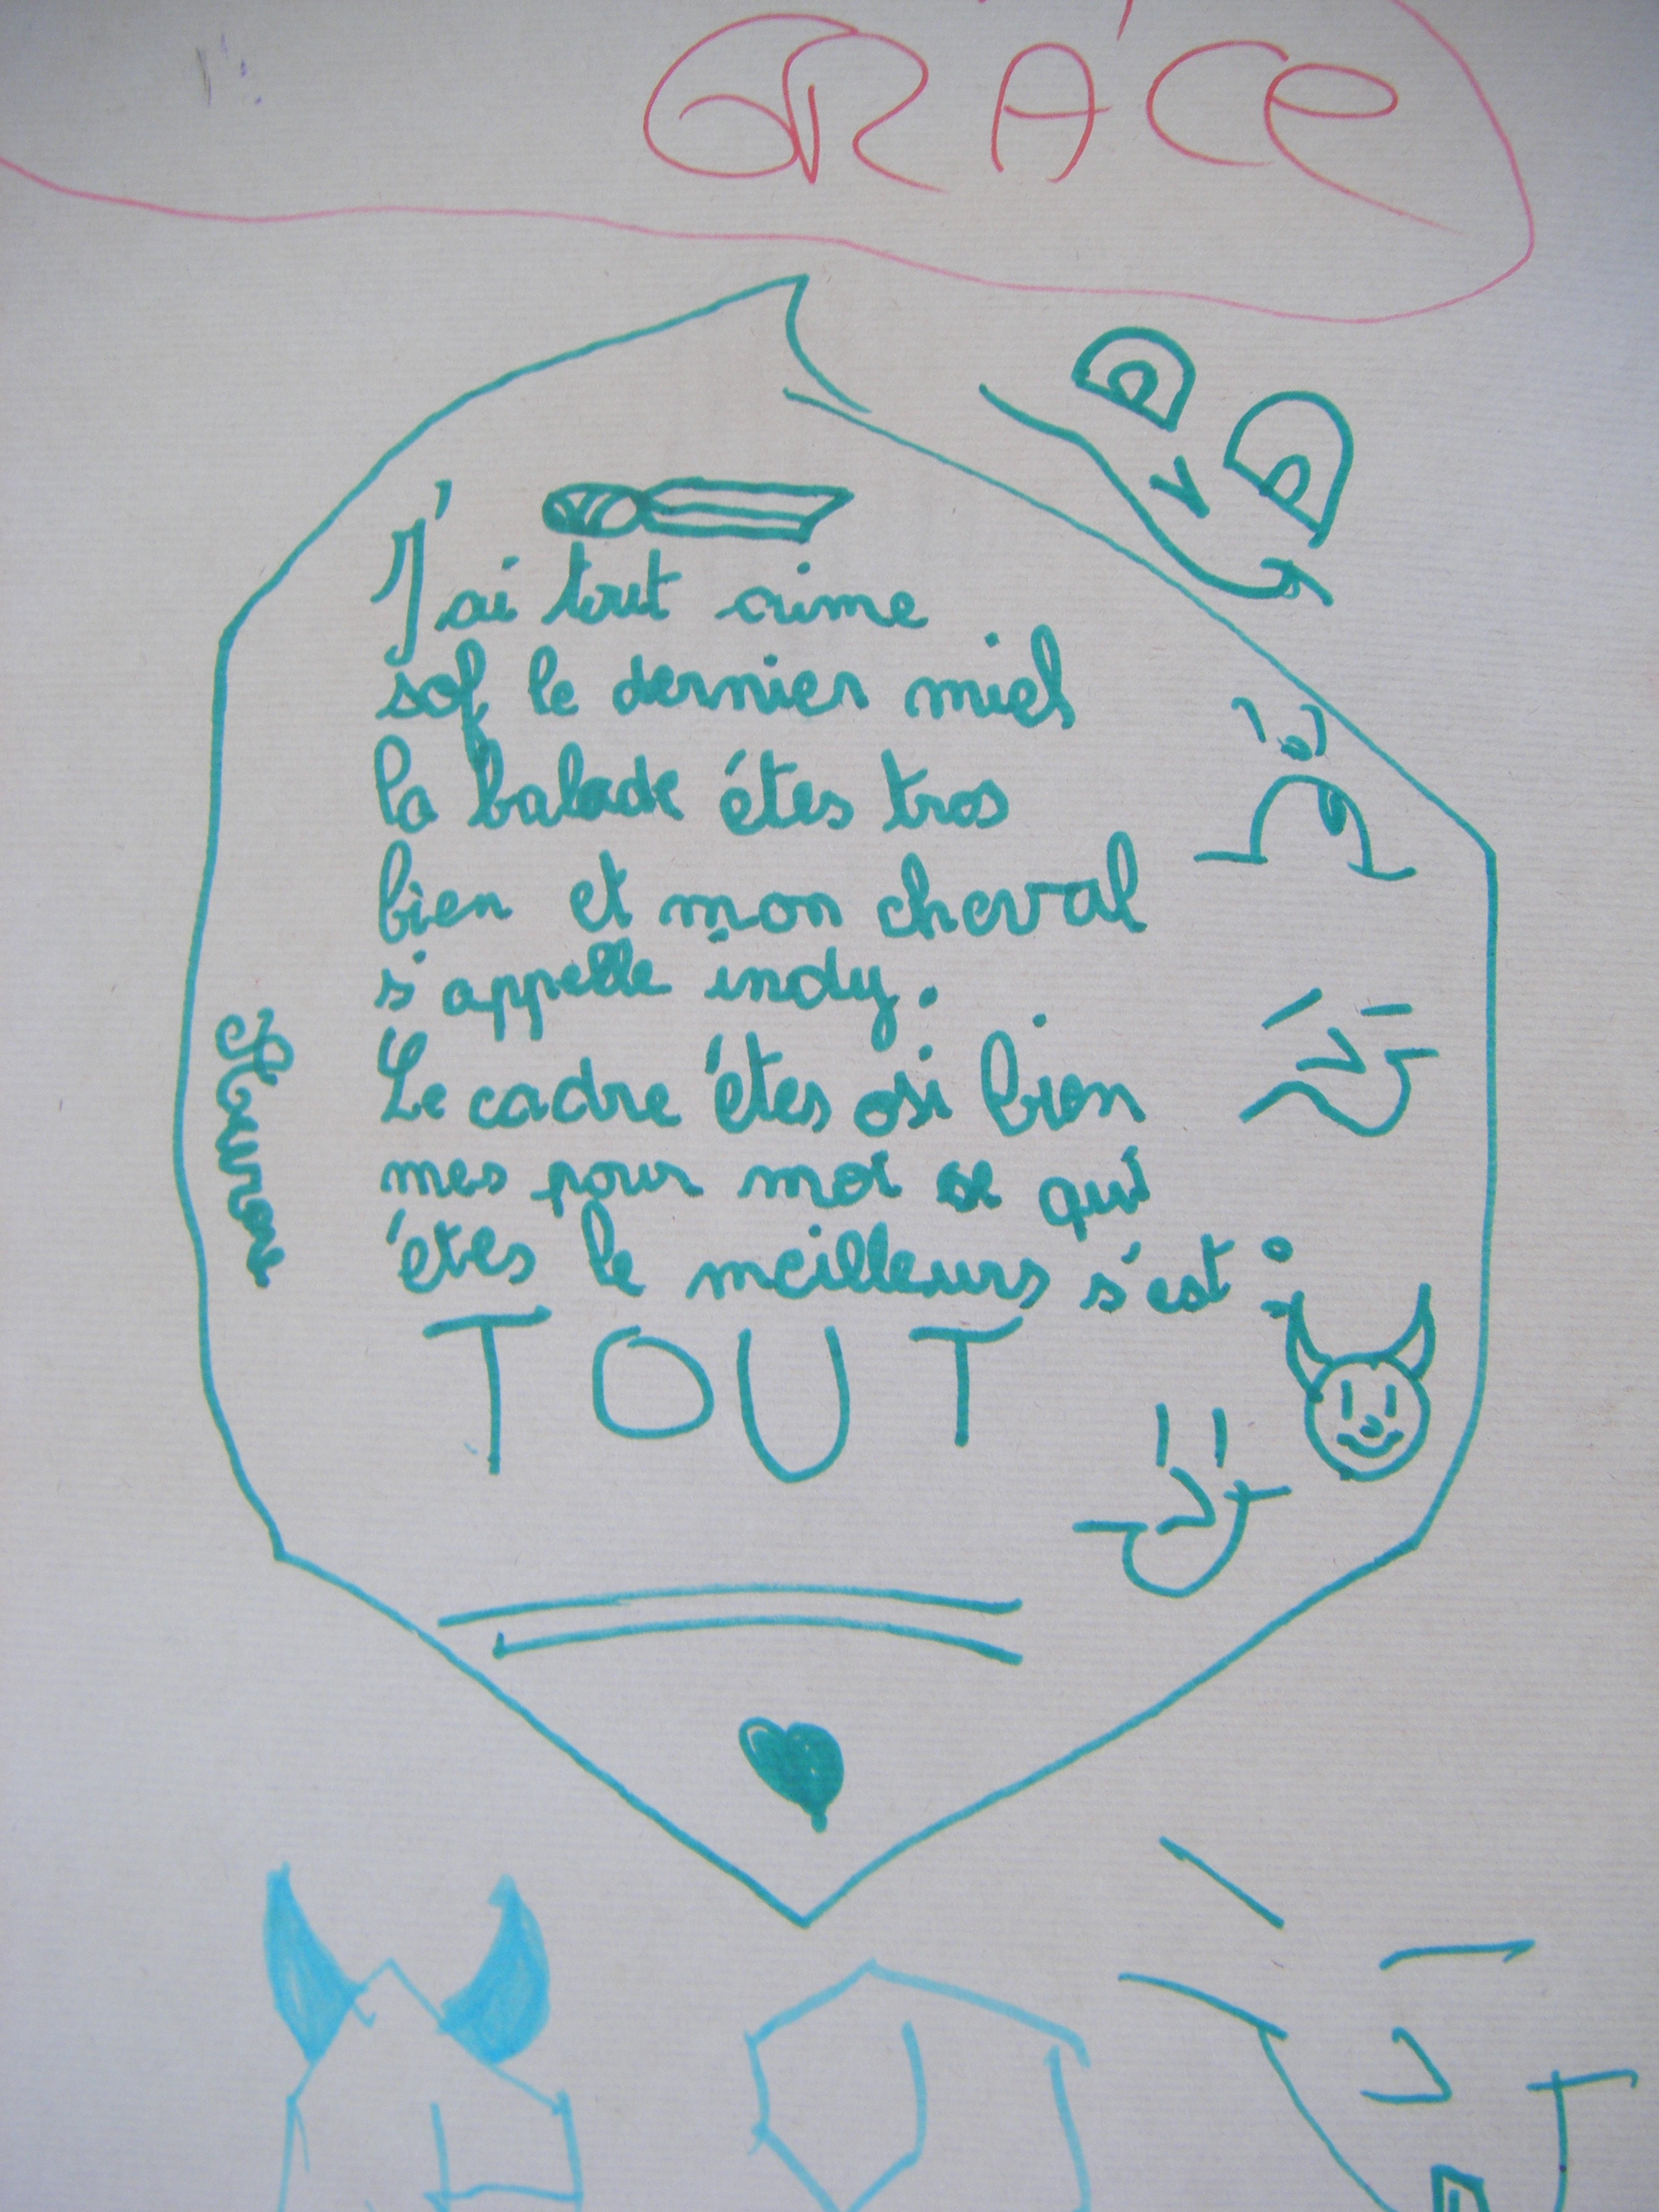 GRÂCE
J'ai tout aime
sof le dernier miel
la balade étes tros
bien et mon cheval
s'appelle indy.
Le cadre étes osi bien
mes pour moi se qui
étes le meilleurs s'est :
TOUT